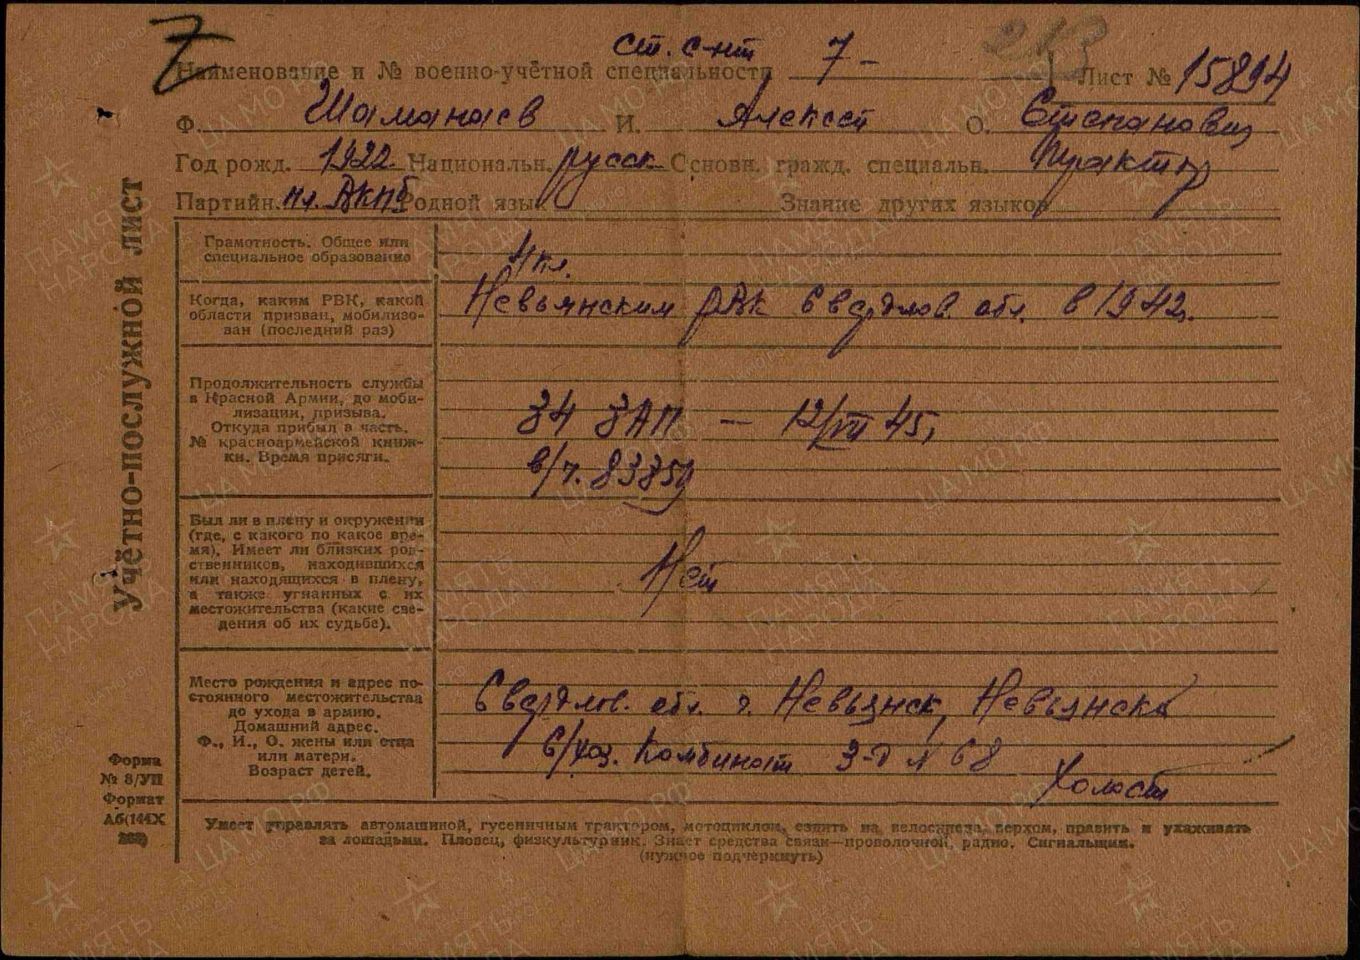 ст. с-нт 7 - 213
Наименование и № военно-учётной специальности Лист № 15894
Ф. Шаманаев И. Алексей О. Степанович
Год рожд. 1922 Национальн. русск Основн. гражд. специальн. Тракт
Партийн. чл. ВКПб Родной язык Знание других языков
Учётно-послужной лист
Грамотность. Общее или
специальное образование
4 кл.
Когда, каким РВК, какой
области призван, мобилизо-
ван (последний раз)
Невьянским РВК Свердлов. обл. в 1942г.
Продолжительность службы
в Красной Армии, до моби-
лизации, призыва.
Откуда прибыл в часть.
№ красноармейской книж-
ки. Время присяги.
34 ЗАП — 12/VII 45,
в/ч. 83359
Был ли в плену и окружении
(где, с какого по какое вре-
мя). Имеет ли близких род-
ственников, находившихся
или находящихся в плену,
а также угнанных с их
местожительства (какие све-
дения об их судьбе).
Нет
Место рождения и адрес по-
стоянного местожительства
до ухода в армию.
Домашний адрес.
Ф., И., О. жены или отца
или матери.
Возраст детей.
Свердлов. обл. г. Невьянск, Невьянск
с/хоз. Комбинат З-д № 68
Холост
Форма
№ 8/УП
Формат
А5(144Х
203)
Умеет управлять автомашиной, гусеничным трактором, мотоциклом, ездить на велосипеде, верхом, править и ухаживать
за лошадьми. Пловец, физкультурник. Знает средства связи—проволочной, радио. Сигнальщик.
(нужное подчеркнуть)